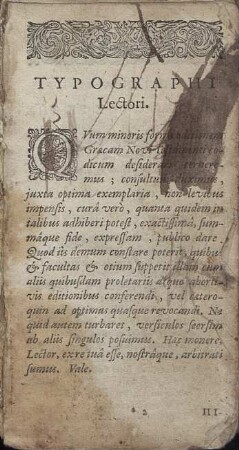 TYPOGRAPHI
Lectori.
CVum minoris formæ
Græcam Novi
dicum desiderari cerneremus
mus; consultum duximus,
juxta optima exemplaria, non levibus
impensis, curâ verò, quanta quidem in
talibus adhiberi potest, exactissimâ, sum-
máque fide, expressam, publico dare.
Quod iis demum constare poterit, quibus
& facultas & otium suppetit illam cum
aliis quibusdam proletariis atque aborti-
vis editionibus conferendi, vel cætero-
quin ad optimas quasque revocandi. Ne
quid antem turbaret, versiculos seorsim
ab aliis singulos posuimus. Hæc monere,
Lector, ex re tuâ esse, nostráque, arbitrati
sumus. Vale.
a 2 III-